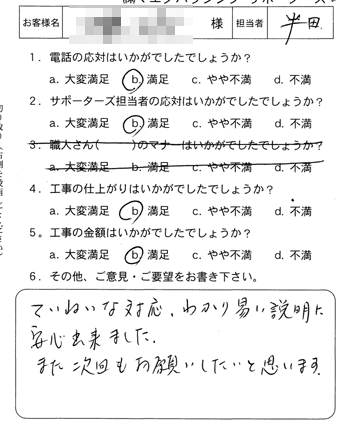 お客様名 様 担当者 半田
1．電話の応対はいかがでしたでしょうか？
a. 大変満足 b. 満足 c. やや不満 d. 不満
2．サポーターズ担当者の応対はいかがでしたでしょうか？
a. 大変満足 b. 満足 c. やや不満 d. 不満
3．職人さん( )のマナーはいかがでしたでしょうか？
a. 大変満足 b. 満足 c. やや不満 d. 不満
4．工事の仕上がりはいかがでしたでしょうか？
a. 大変満足 b. 満足 c. やや不満 d. 不満
5。工事の金額はいかがでしたでしょうか？
a. 大変満足 b. 満足 c. やや不満 d. 不満
6．その他、ご意見・ご要望をお書き下さい。
ていねいな対応、わかり易い説明に
安心出来ました.
また次回もお願いしたいと思います.